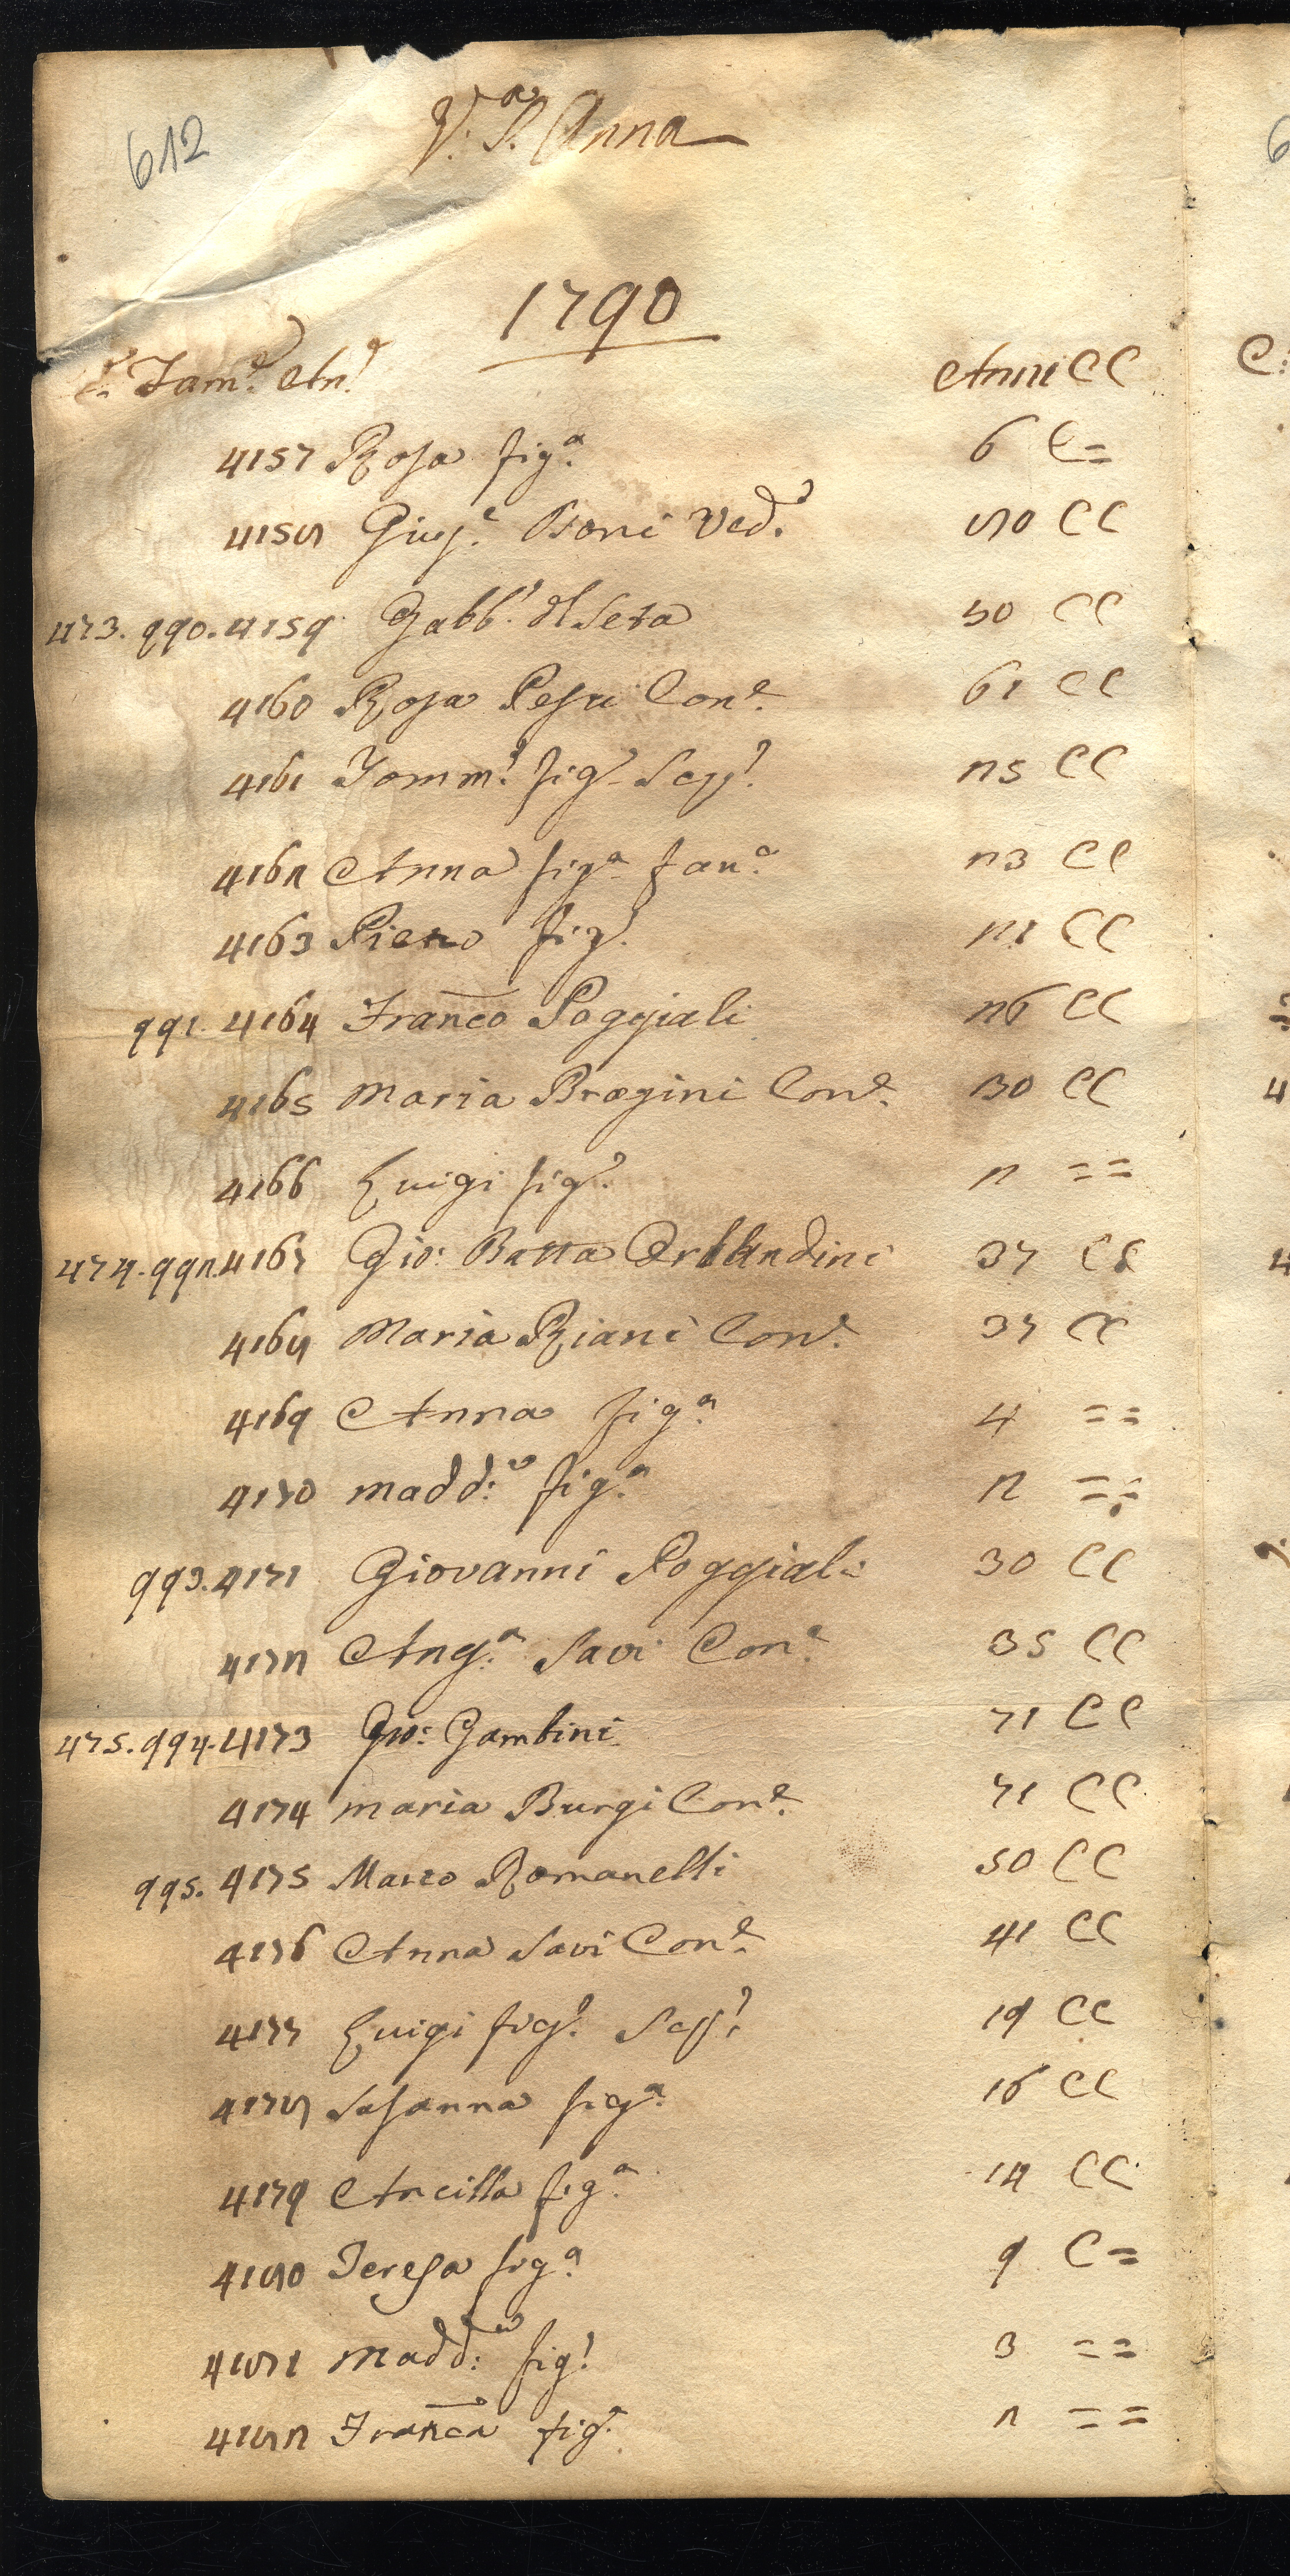 612
V.a S. Anna
1790
C. Fam.e An.e Anni CC
4157 Rosa fig.a 6 C=
4158 Giuf.e Boni Ved.a 80 CC
473. 990. 4159 Gabb.o del Seta 50 CC
4160 Rosa Pesu Con.e 61 CC
4161 Tomm.o fig.o Scap.o 25 CC
4162 Anna fig.a fan.a 23 CC
4163 Piero fig.o 21 CC
991. 4164 Franco Poggiali 26 CC
4165 Maria Bragini Con.e 30 CC
4166 Luigi fig.o 2 ==
474. 992. 4167 Gio: Batta Orlandini 37 CC
4168 Maria Riani Con.e 37 CC
4169 Anna fig.a 4 ==
4170 Madd:a fig.a 2 ==
993. 4171 Giovanni Poggiali 30 CC
4172 Ang.a Savi Con.e 35 CC
475. 994. 4173 Gio: Gambini 71 CC
4174 Maria Burgi Con.e 71 CC
995. 4175 Marco Romanelli 50 CC
4176 Anna Savi Con.e 41 CC
4177 Luigi fig.o Scap.o 19 CC
4178 Susanna fig.a 16 CC
4179 Ancilla fig.a 14 CC
4180 Teresa fig.a 9 C=
4181 Madd:a fig.a 3 ==
4182 Franca fig.a 2 ==